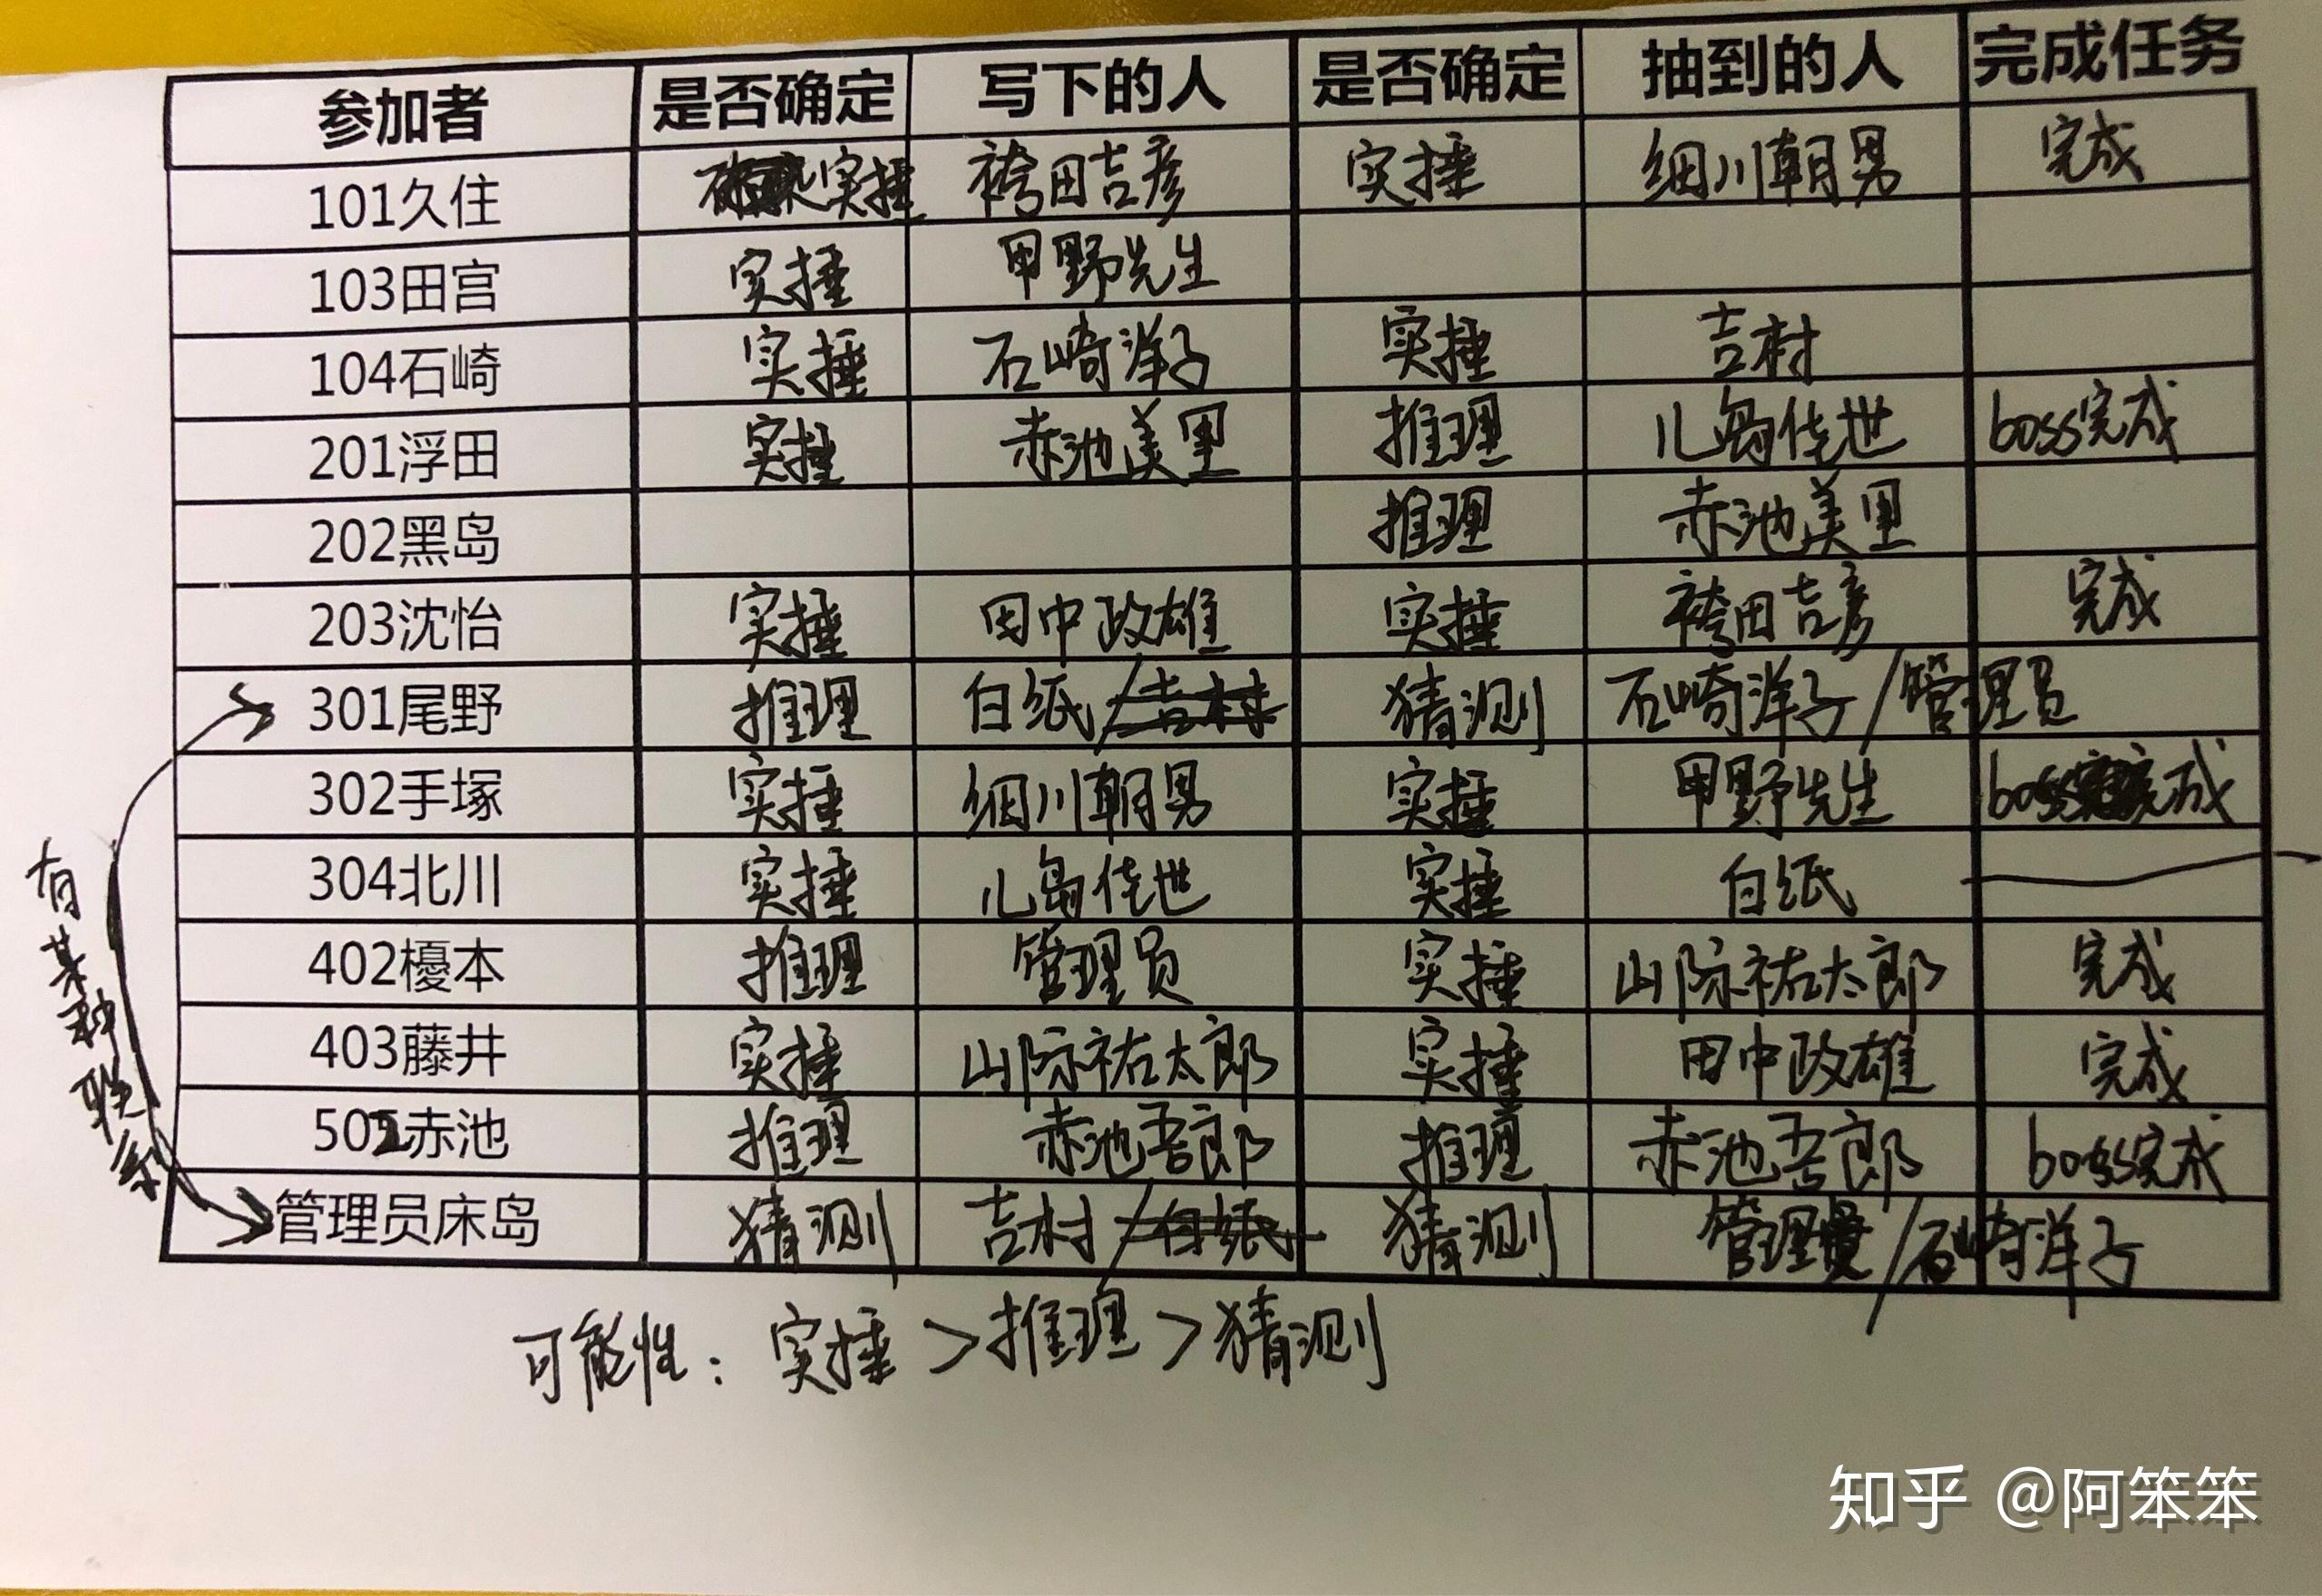 参加者 是否确定 写下的人 是否确定 抽到的人 完成任务
101久住 实捶 袴田吉彦 实捶 细川朝男 完成
103田宫 实捶 甲野先生
104石崎 实捶 石崎洋子 实捶 吉村
201浮田 实捶 赤池美里 推理 儿岛佳世 boss完成
202黑岛 推理 赤池美里
203沈怡 实捶 田中政雄 实捶 袴田吉彦 完成
301尾野 推理 白纸/吉村 猜测 石崎洋子/管理员
302手塚 实捶 细川朝男 实捶 甲野先生 boss完成
304北川 实捶 儿岛佳世 实捶 白纸
402榎本 推理 管理员 实捶 山际祐太郎 完成
403藤井 实捶 山际祐太郎 实捶 田中政雄 完成
502赤池 推理 赤池吾郎 推理 赤池吾郎 boss完成
管理员床岛 猜测 吉村/白纸 猜测 管理员/石崎洋子
有某种联系
可能性：实捶>推理>猜测
知乎 @阿笨笨